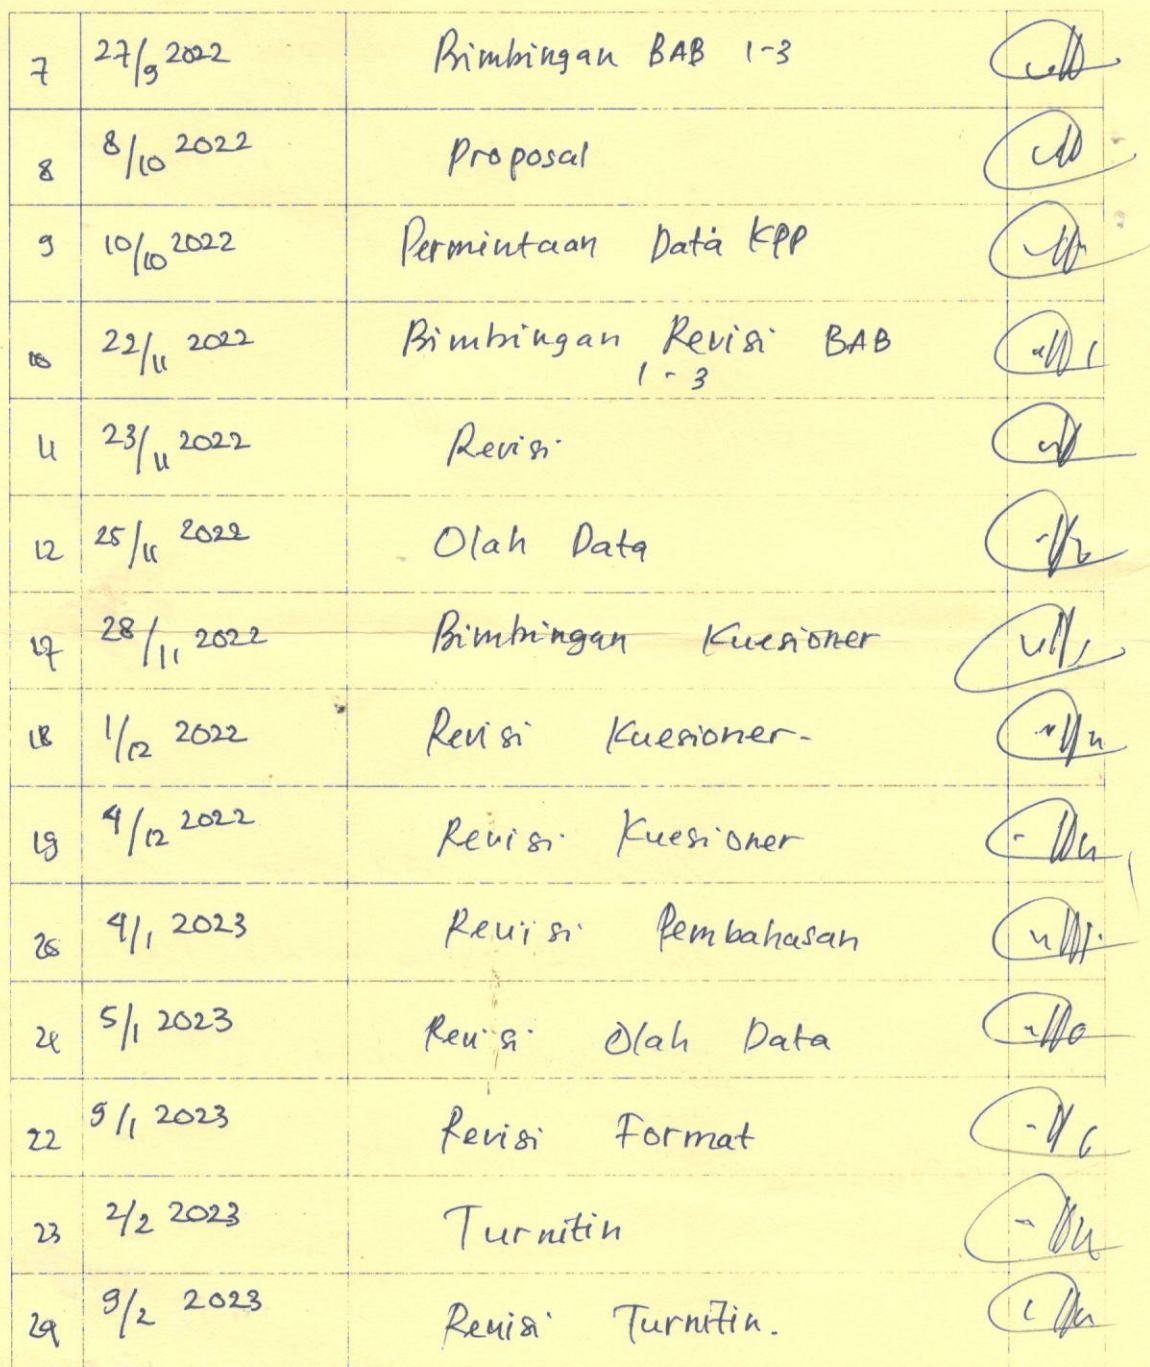 7 27/9 2022 Bimbingan BAB 1-3
8 8/10 2022 Proposal
9 10/10 2022 Permintaan Data KPP
10 22/11 2022 Bimbingan Revisi BAB
1-3
11 23/11 2022 Revisi
12 25/11 2022 Olah Data
17 28/11 2022 Bimbingan Kuesioner
18 1/12 2022 Revisi Kuesioner-
19 4/12 2022 Revisi Kuesioner
20 4/1 2023 Revisi Pembahasan
21 5/1 2023 Revisi Olah Data
22 9/1 2023 Revisi Format
23 2/2 2023 Turnitin
24 9/2 2023 Revisi Turnitin.